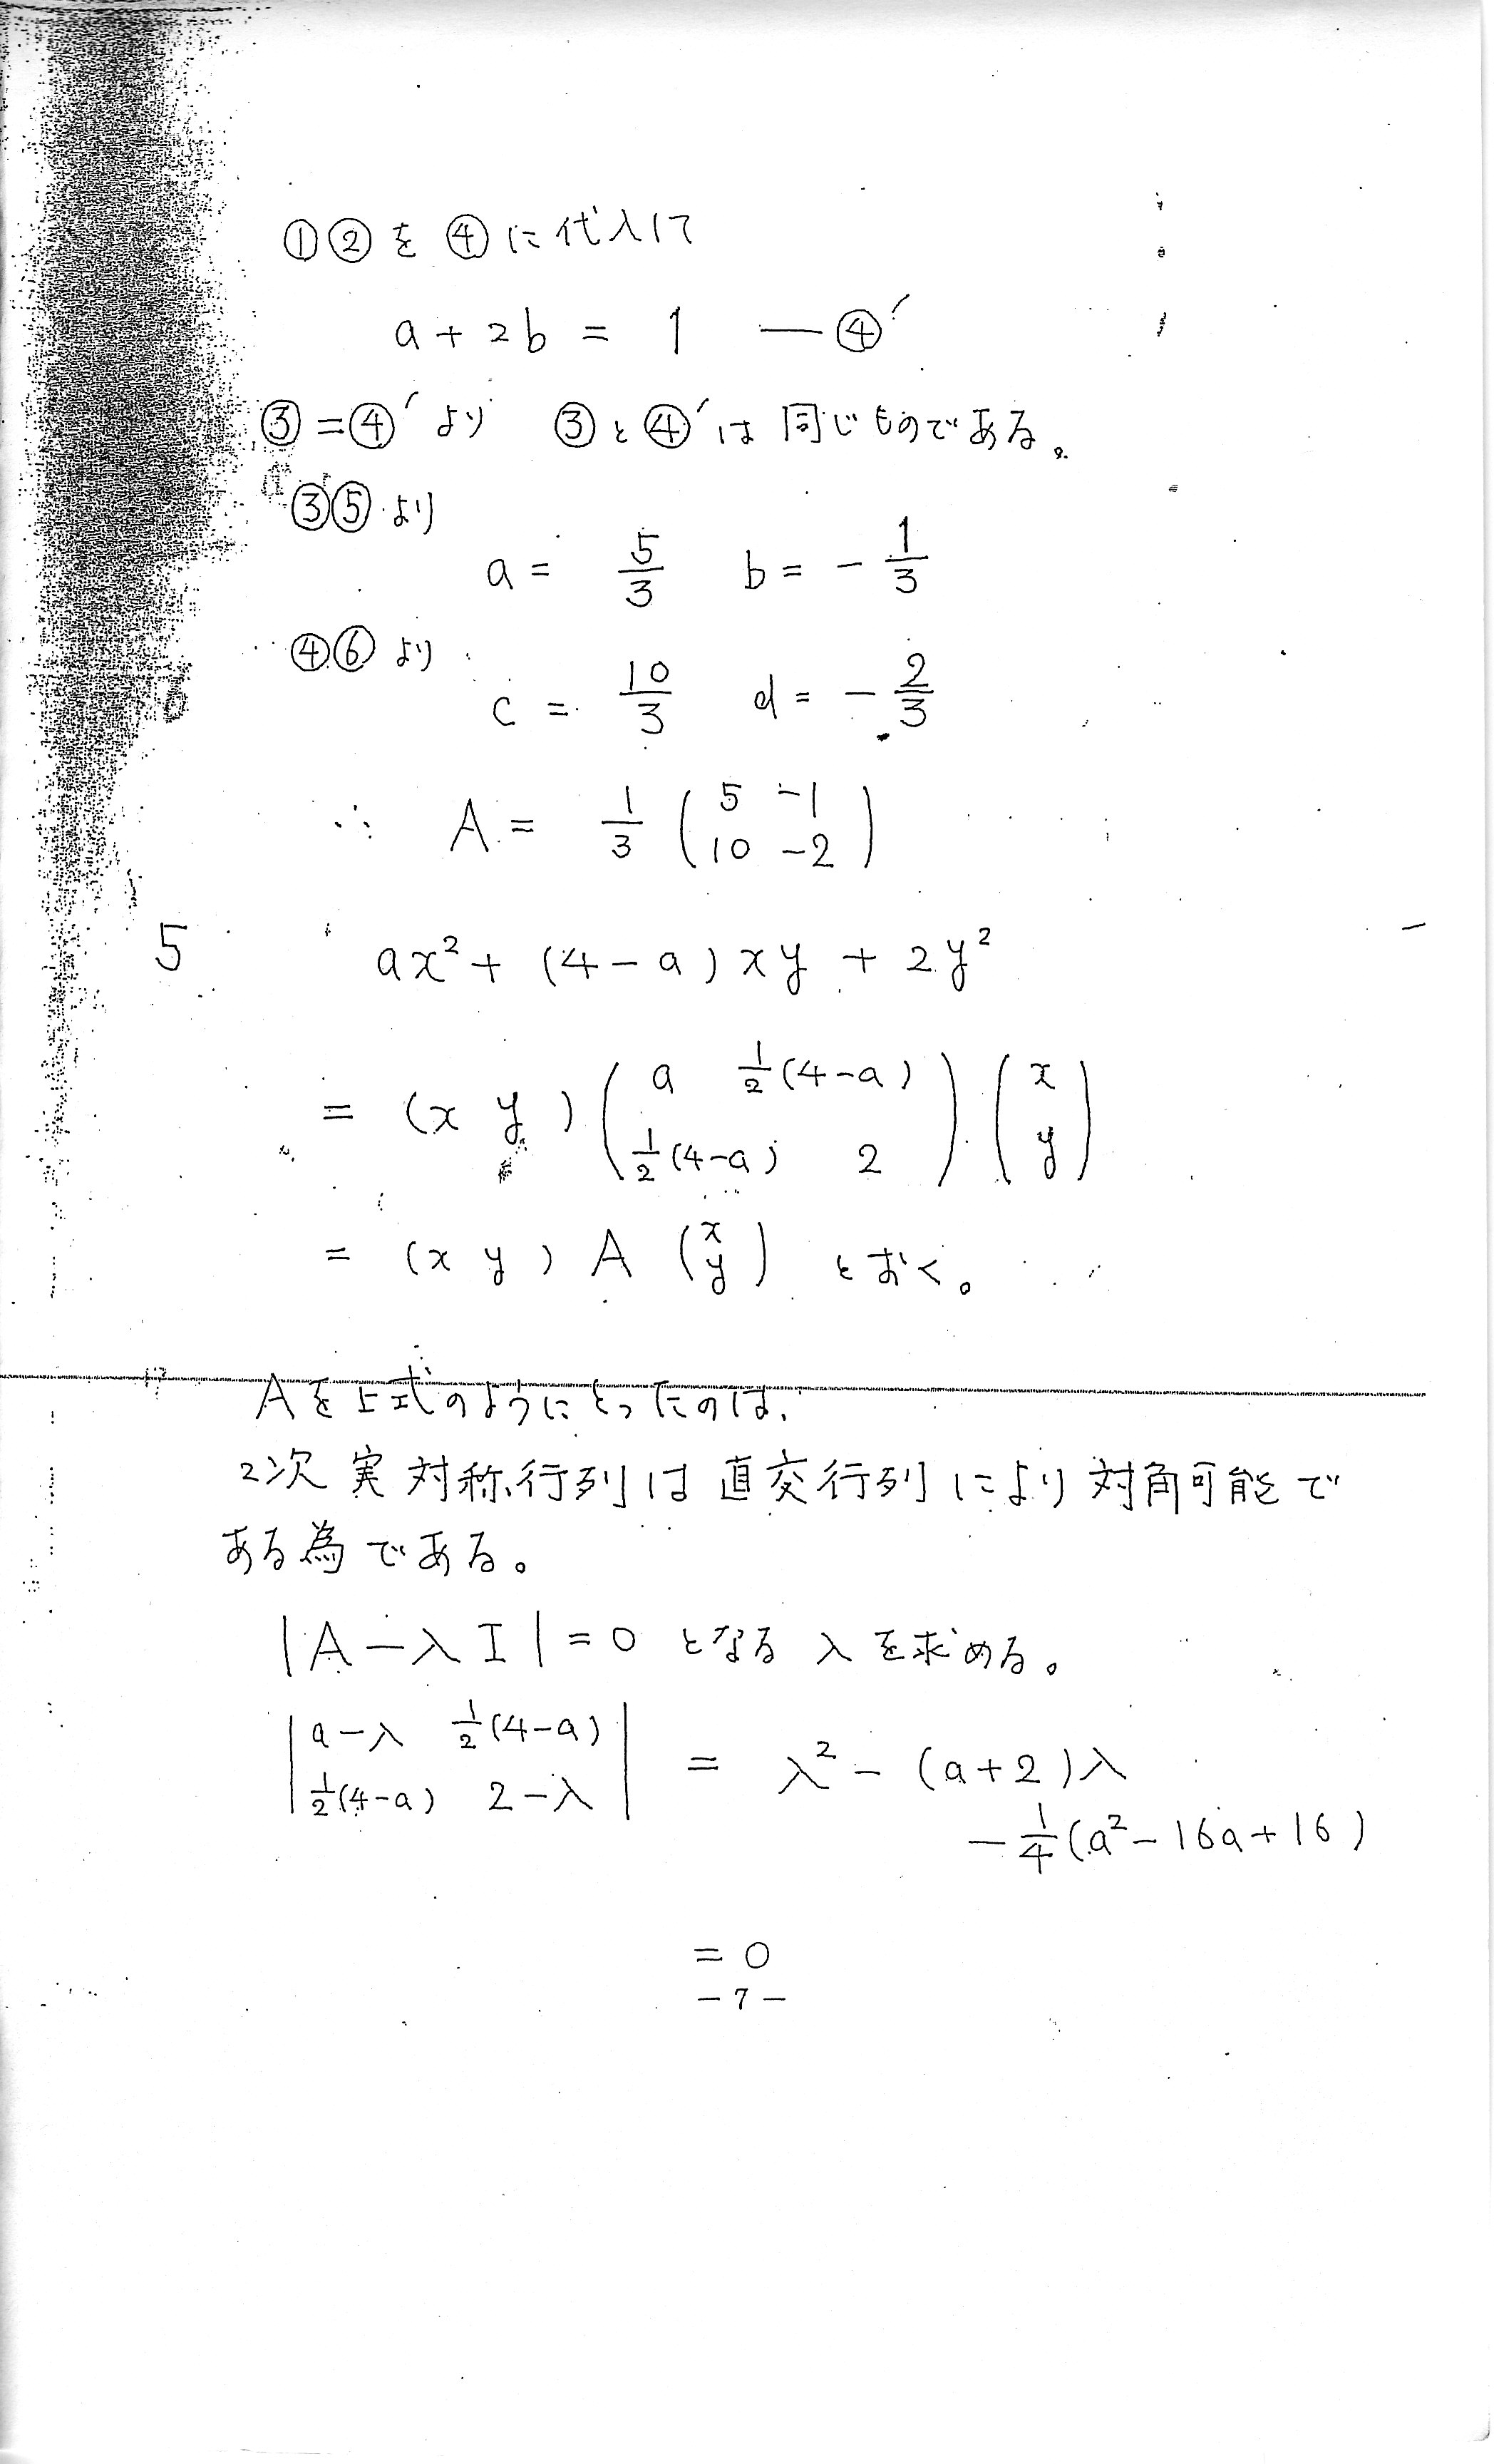 ①②を④に代入して
a + 2b = 1 —④′
③=④′より ③と④′は同じものである。
③⑤より
a = 5/3 b = -1/3
④⑥より
c = 10/3 d = -2/3
∴ A = 1/3 (5 -1
10 -2)
5 ax² + (4-a)xy + 2y²
= (x y) (a 1/2(4-a)
1/2(4-a) 2) (x
y)
= (x y) A (x y) とおく。
Aを上式のようにとったのは、
2次実対称行列は直交行列により対角可能で
ある為である。
|A-λI|=0 となるλを求める。
|a-λ 1/2(4-a)
1/2(4-a) 2-λ| = λ² - (a+2)λ
- 1/4(a²-16a+16)
= 0
- 7 -